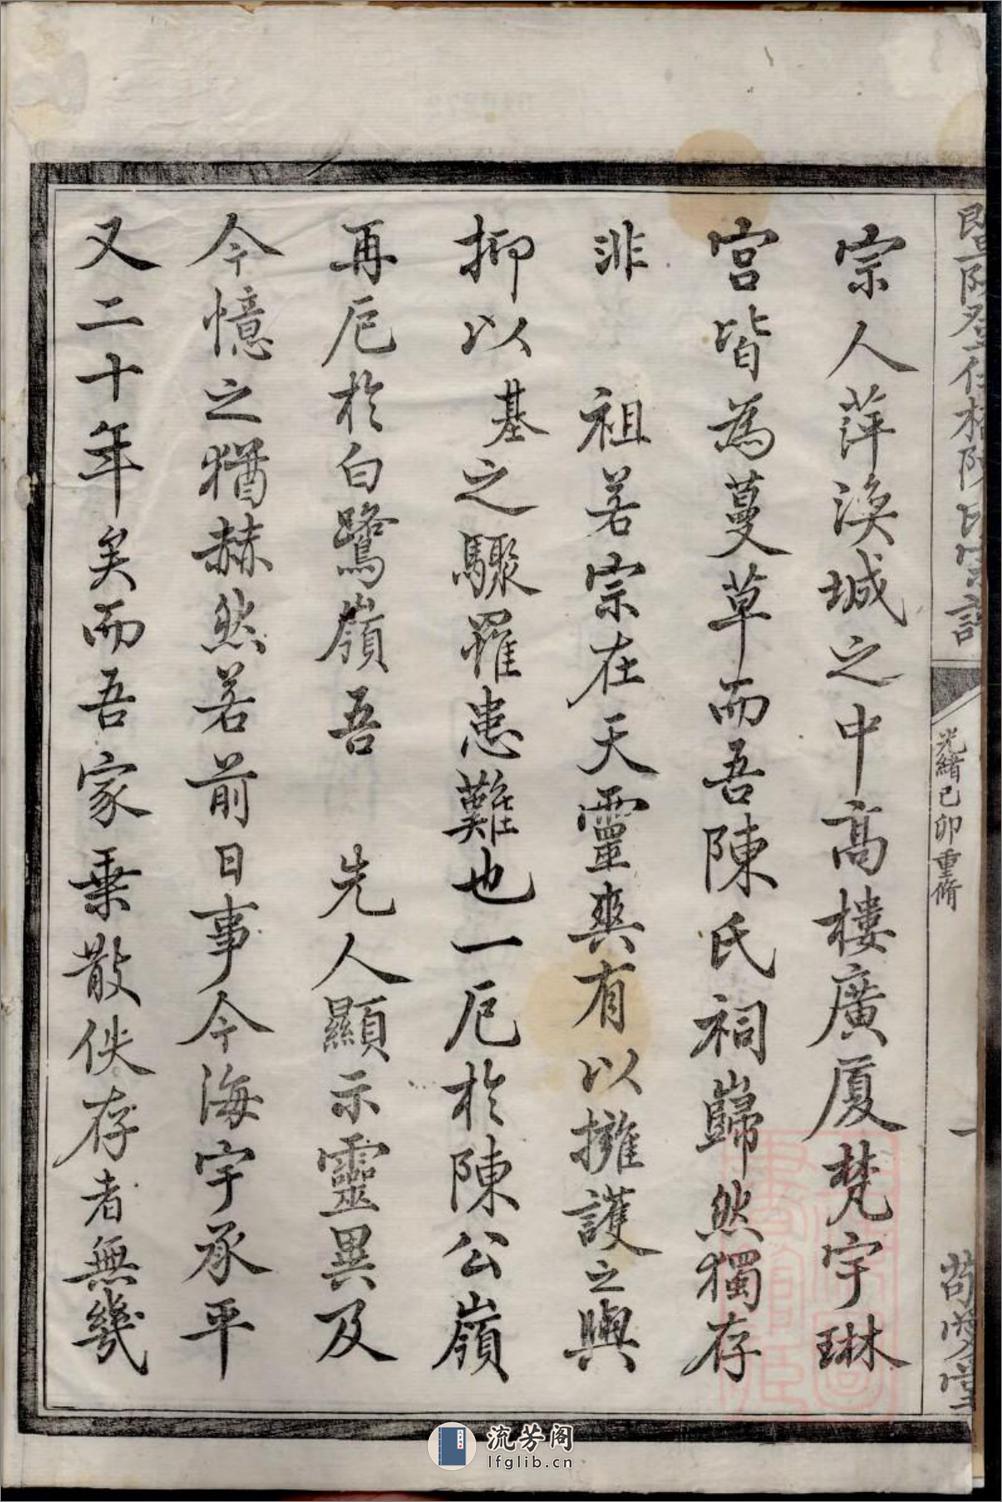 宗人萍渙城之中高樓廣厦梵宇琳
宮皆為蔓草而吾陳氏祠巋然獨存
非　祖若宗在天靈爽有以擁護之與
抑以基之驟罹患難也一厄於陳公嶺
再厄於白鷺嶺吾　先人顯示靈異及
今憶之猶赫然若前日事今海宇承平
又二十年矣而吾家乗散佚存者無幾
宅
陳氏宗譜
光緒己卯重脩
一
流芳阁
lfglib.cn